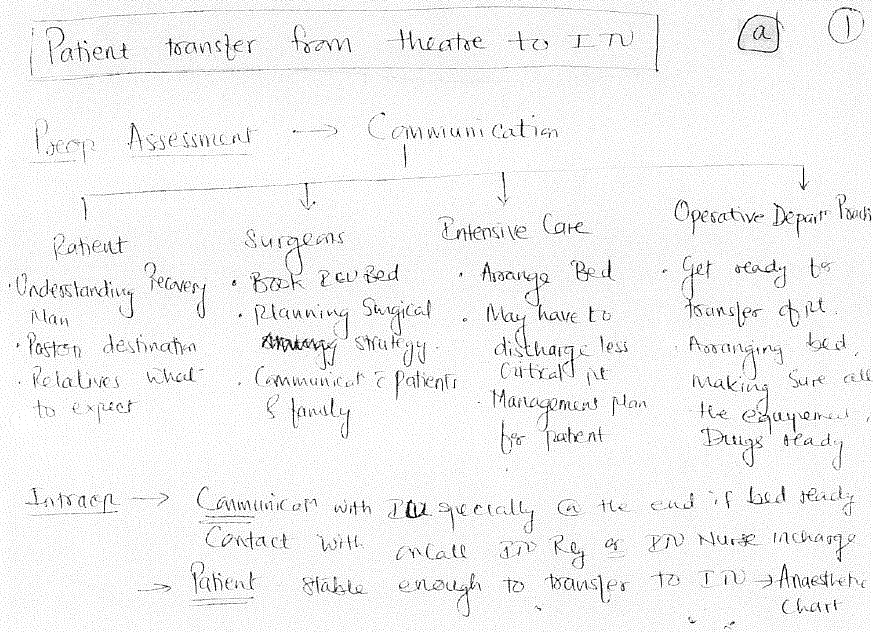 Patient transfer from theatre to ITU
a
1
Preop Assessment → Communication
Patient
· Understanding Recovery
Plan
· Postop destination
· Relatives what
to expect
Surgeons
· Book ICU Bed
· Planning Surgical
strategy.
· Communicat c̄ patients
& family
Intensive Care
· Arrange Bed
· May have to
discharge less
Critical pt
· Management plan
for patient
Operative Depart
· Get ready for
transfer of pt.
· Arranging bed,
Making Sure all
the equipment,
Drugs ready
Intraop → Communicat with ICU specially @ the end if bed ready
Contact with oncall ITU Reg or ITU Nurse incharge
→ Patient stable enough to transfer to ITU → Anaesthetic
Chart